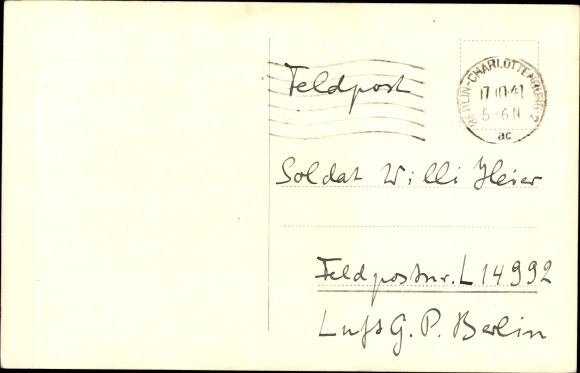 Feldpost
BERLIN-CHARLOTTENBURG 2
17.10.41
5-6 N
ac
Soldat Willi Heier
Feldpostnr. L 14992
Luft G. P. Berlin